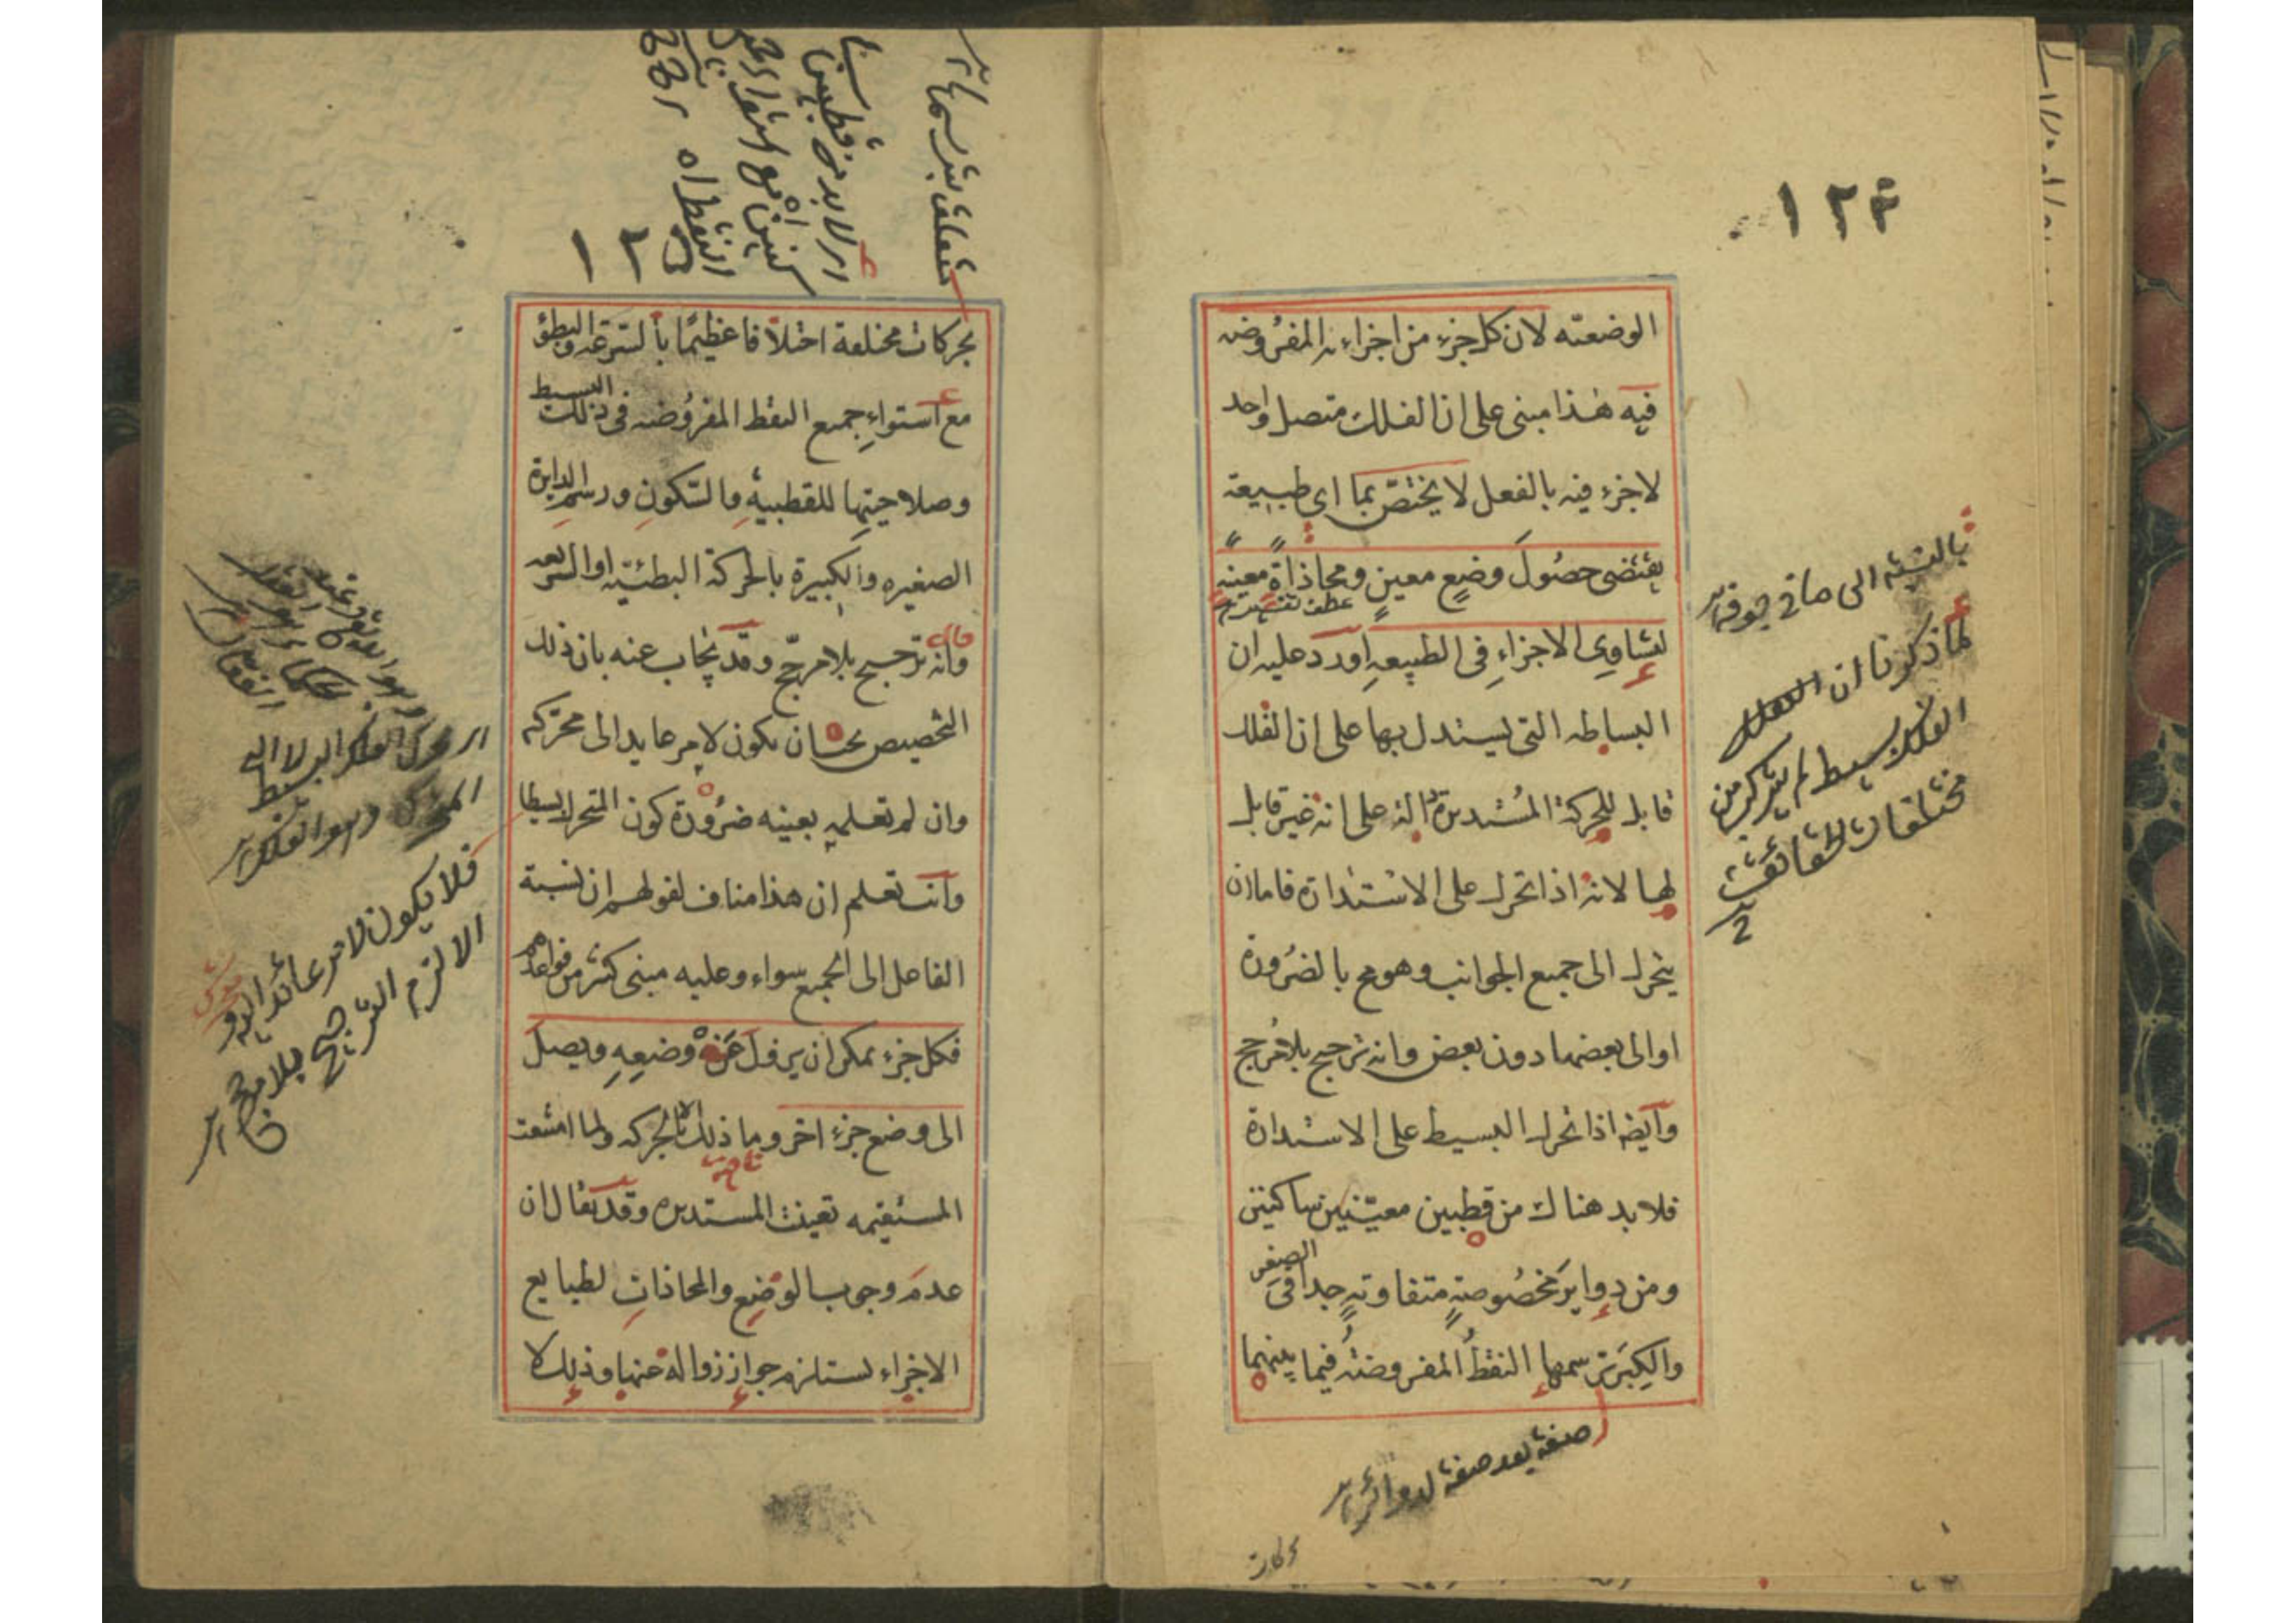 ١٢٤
الوضعته لان كل جزء من اجزاءئه المفروضه
فيه هذا مبنى على ان الفلك متصل واحد
لا جزء فيه بالفعل لا يختصّ بما اى طبيعة
يقتضى حصُولَ وضعٍ معينٍ ومحاذاةٍ معينهٍ
عطف تفسير
لتساوِى الاجزاءِ فى الطبيعهِ اورد عليه ان
البساطه التى يستدل بها على ان الفلك
قابل للحركة المُستديرة دالة على انه غير قابل
لها لانه اذا تحرك على الاستدارة فاما ان
يتحرك الى جميع الجوانب وهو مح بالضرُورة
او الى بعضها دون بعض وانه ترجيح بلا مُرجح
وآيضه اذا تحرك البسيط على الاستدارة
فلا بد هناك من قطبين معيّنين ساكنين
ومن دواير مخصُوصةٍ متفاوتهٍ جدا فى الصغر
والكِبَر ترسمها النقطُ المفروضتُه فيما بينهما
صفة بعد صفة لدوائر
بحركات
بالنسبة الى ما في جوفه
لما ذكرنا ان
الفلك بسيط لم يتركب من
مختلفات الحقائق
١٢٥
متعلق بترسمها
اى لا بد من قطبين
النقط اه
بحركات مختلفة اختلافا عظيمًا بالسّرعه والبطؤ
مع استواءِ جميع النقط المفروُضه فى ذلك البسيط
وصلاحيتها للقطبيهِ والسّكونِ ورسمِ الدايرة
الصغيره والكبيرة بالحركة البطئيّه او السريعه
وانه ترجيح بلا مرجّح وقد يُجاب عنه بان ذلك
التخصيص يجب ان يكون لامر عايد الى محرّكه
وان لم تعلمه بعينه ضرُورة كون المتحرك بسيطا
وآنت تعلم ان هذا مناف لقولهم ان نسبة
الفاعل الى الجميع سواء وعليه مبنى كثير من قواعدهم
فكل جزء يمكن ان يزول عن وضعِهِ ويصل
الى وضع جزء اخر وما ذلك الا بالحركه ولما امتنعت
المستقيمه تعينت المستديره وقد يقال ان
عدم وجوب الوضع والمحاذاتِ لطبايع
الاجزاء لستلزم جواز زواله عنها وذلك لا
فلا يكون لامر عائد اليه
الا لزم الترجيح بلا مرجح